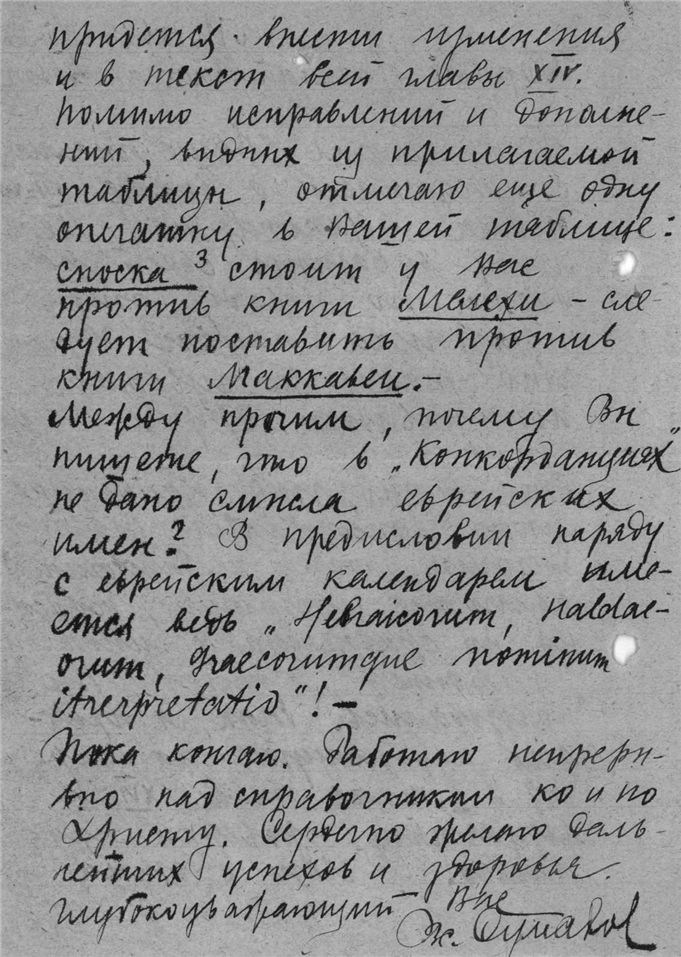 придется внести изменения
и в текст всей главы XIV.
Помимо исправлений и дополне-
ний, видных из прилагаемой
таблицы, отмечаю еще одну
опечатку в Вашей таблице:
сноска 3 стоит у Вас
против книги Мелехи – сле-
дует поставить против
книги Маккавеи. –
Между прочим, почему Вы
пишете, что в „Конкорданциях"
не дано смысла еврейских
имен? В предисловии наряду
с еврейским календарем име-
ется ведь „Hebraicorum, Haldae-
orum, Graecorumque nominum
itrerpretatio"! –
Пока кончаю. Работаю непреры-
вно над справочником ко и по
Христу. Сердечно желаю даль-
нейших успехов и здоровья.
Глубокоуважающий Вас